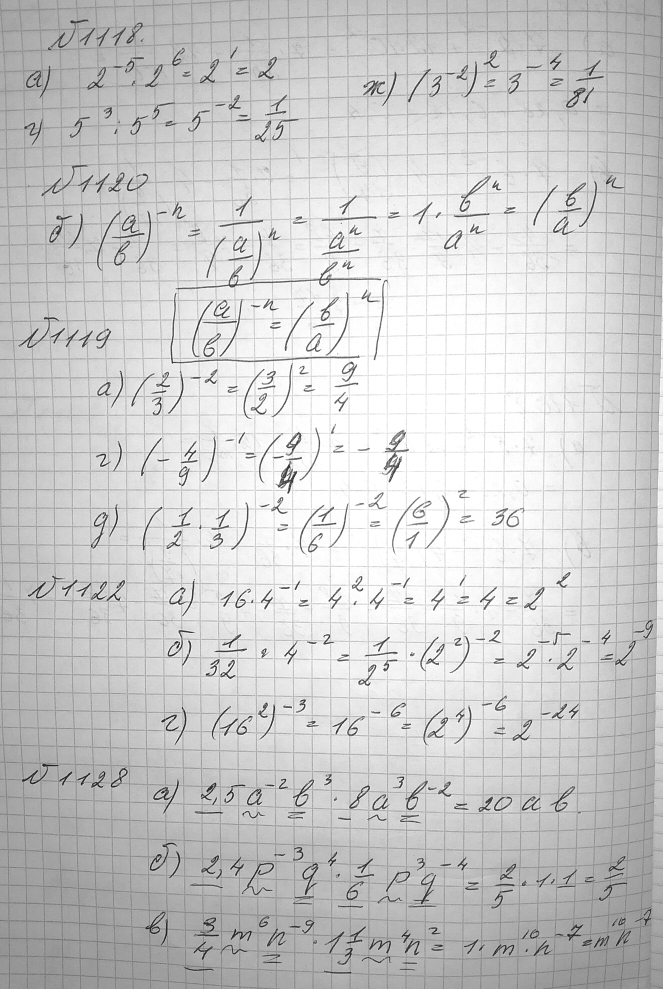 №1118.
а) 2⁻⁵ · 2⁶ = 2¹ = 2 ж) (3⁻²)² = 3⁻⁴ = 1/81
г) 5³ : 5⁵ = 5⁻² = 1/25
№1120
б) (a/b)⁻ⁿ = 1/(a/b)ⁿ = 1/(aⁿ/bⁿ) = 1 · bⁿ/aⁿ = (b/a)ⁿ
(a/b)⁻ⁿ = (b/a)ⁿ
№1119
а) (2/3)⁻² = (3/2)² = 9/4
г) (-4/9)⁻¹ = (-9/4)¹ = -9/4
д) (1/2 · 1/3)⁻² = (1/6)⁻² = (6/1)² = 36
№1122 а) 16 · 4⁻¹ = 4² · 4⁻¹ = 4¹ = 4 = 2²
б) 1/32 · 4⁻² = 1/2⁵ · (2²)⁻² = 2⁻⁵ · 2⁻⁴ = 2⁻⁹
г) (16²)⁻³ = 16⁻⁶ = (2⁴)⁻⁶ = 2⁻²⁴
№1128 а) 2,5a⁻²b³ · 8a³b⁻² = 20ab.
б) 2,4p⁻³q⁴ · 1/6 p³q⁻⁴ = 2/5 · 1 · 1 = 2/5
в) 3/4 m⁶n⁻⁹ · 1 1/3 m⁴n² = 1 · m¹⁰ · n⁻⁷ = m¹⁰n⁻⁷